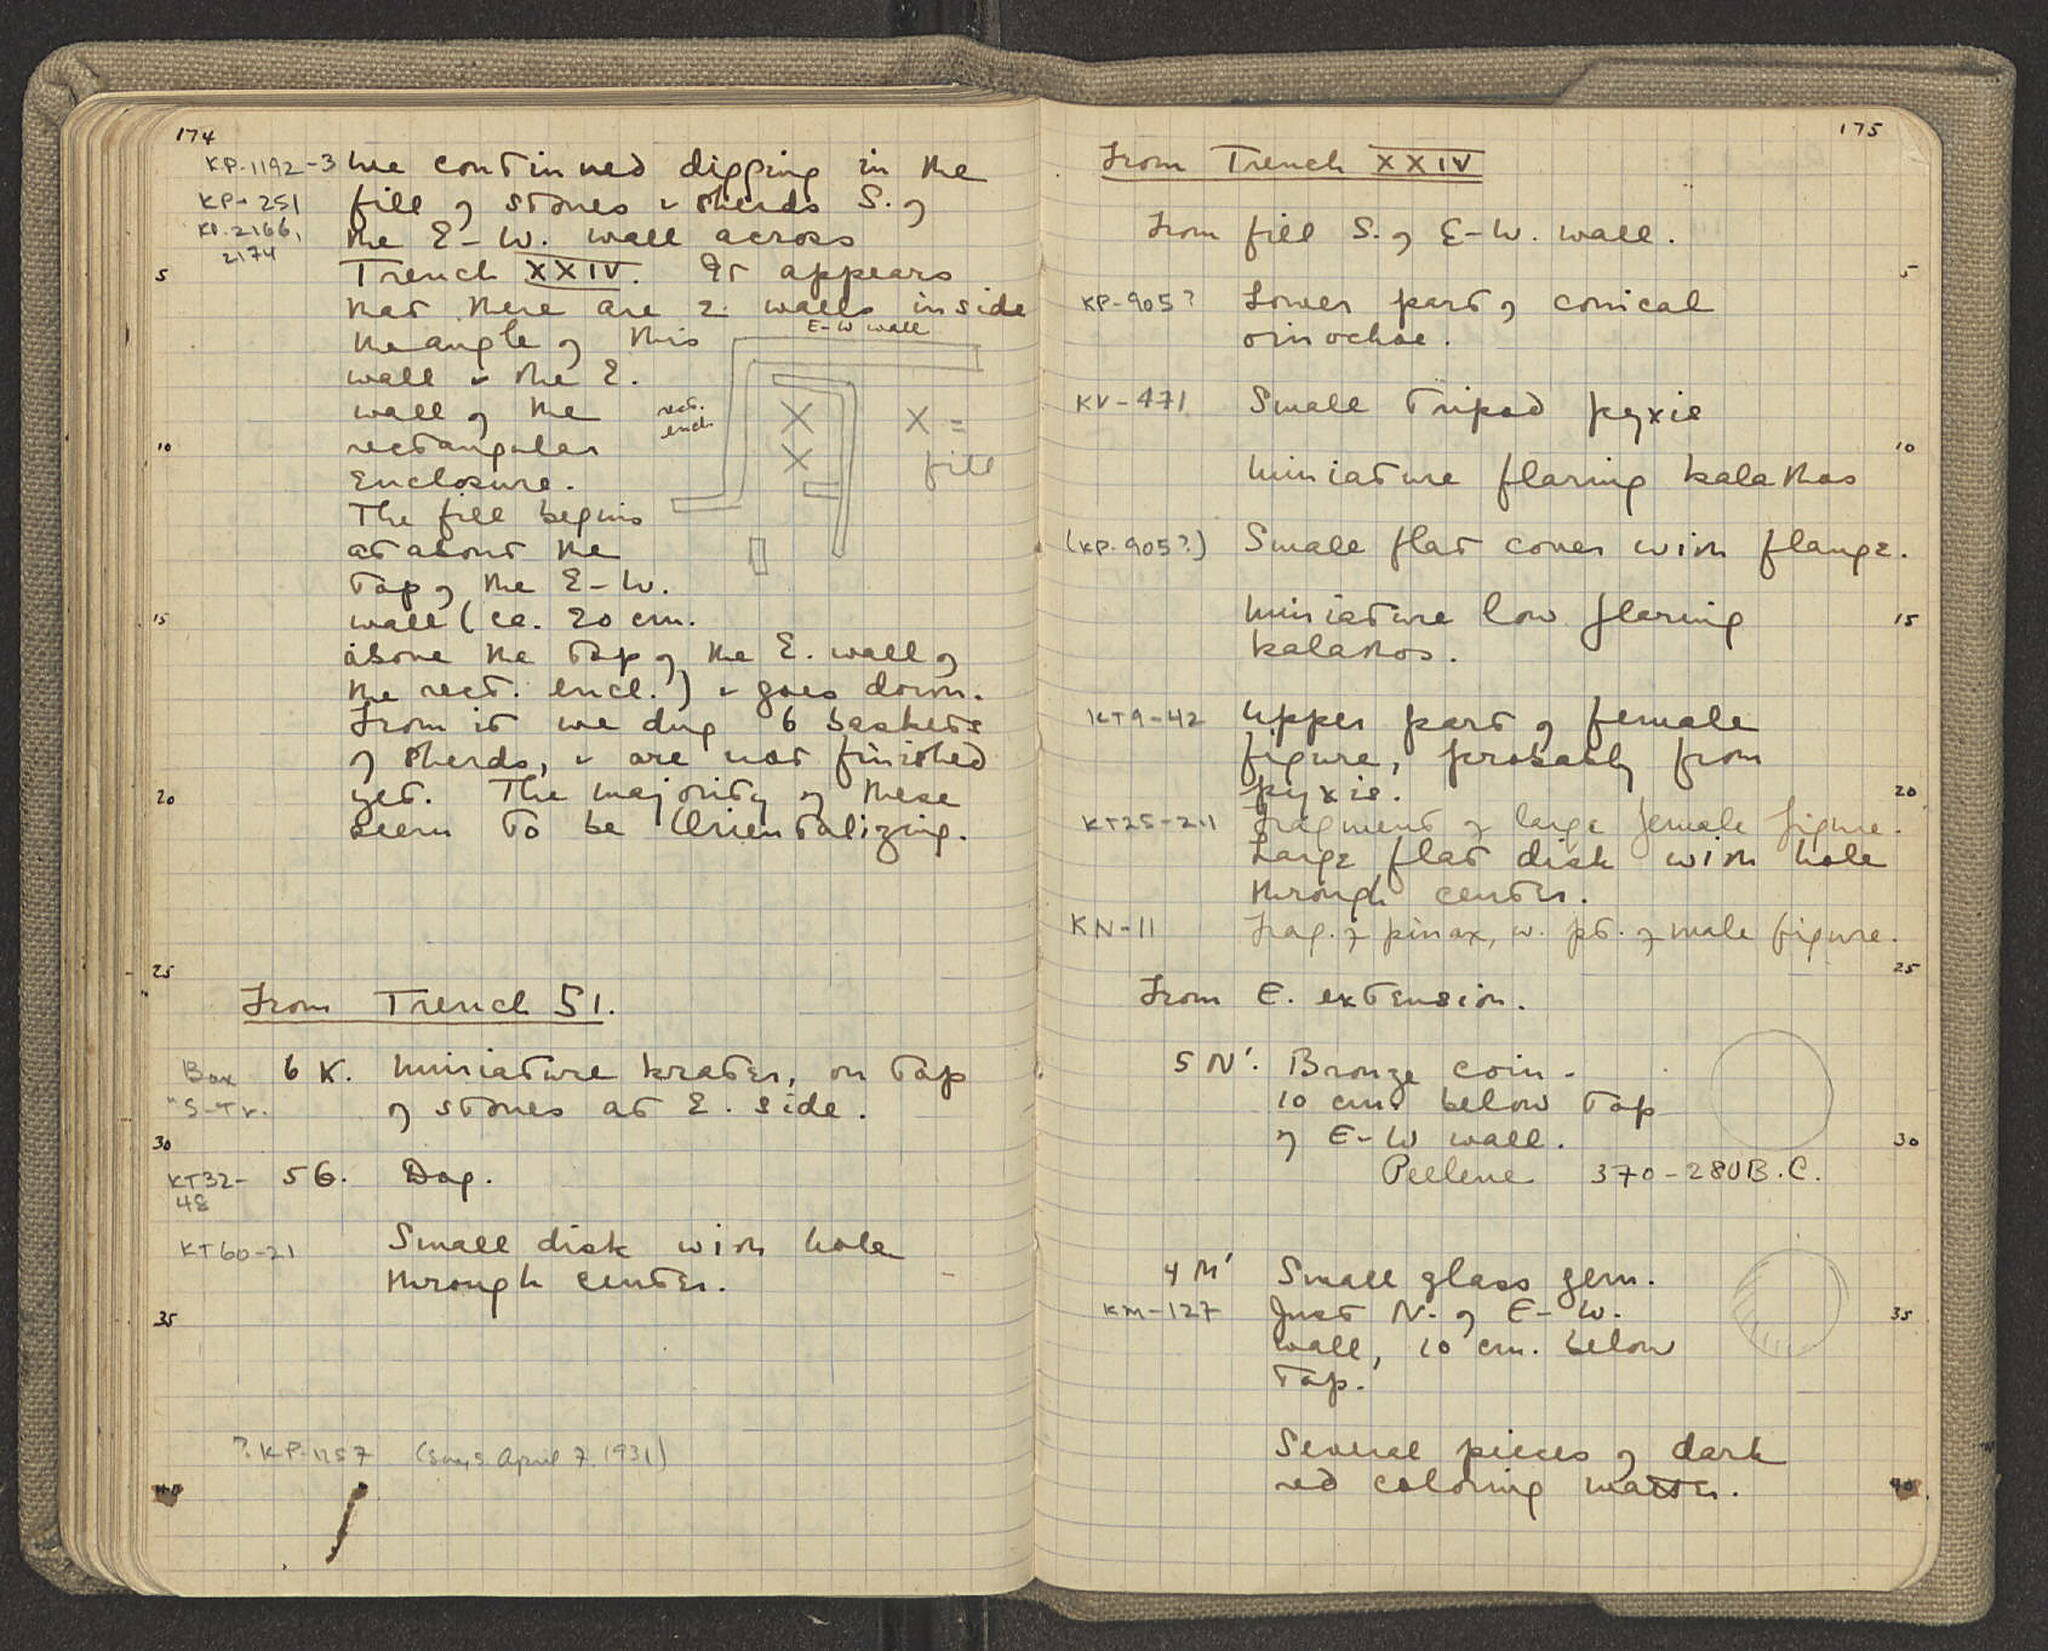 174
KP-1192-3 We continued digging in the
KP-251 fill of stones & sherds S. of
KP.2166, the E-W. wall across
2174
5 Trench XXIV. It appears
that there are 2 walls inside
the angle of this E-W wall
wall & the E.
wall of the rect. encl. X X =
10 rectangular X fill
Enclosure.
The fill begins
at about the
top of the E-W.
15 wall (ca. 20 cm.
above the top of the E. wall of
the rect. encl.) & goes down.
From it we dug 6 baskets
of sherds, & are not finished
20 yet. The majority of these
seem to be Orientalizing.
25
From Trench 51.
Box 6 K. Miniature krater, on top
"S-Tr. of stones at E. side.
30
KT32-48 56. Dog.
KT60-21 Small disk with hole
through center.
35
?.KP-1157 (says April 7. 1931)
40
175
From Trench XXIV
From fill S. of E-W. wall.
5
KP-905? Lower part of conical
oinochoe.
KV-471 Small tripod pyxis
10
Miniature flaring kalathos
(KP.905?) Small flat cover with flange.
Miniature low flaring 15
kalathos.
KT9-42 Upper part of female
figure, probably from
pyxis. 20
KT25-21 Fragment of large female figure.
Large flat disk with hole
through center.
KN-11 Frag. of pinax, w. pt. of male figure.
25
From E. extension.
5 N'. Bronze coin.
10 cm. below top
of E-W wall. 30
Pellene 370-280 B.C.
4 M' Small glass gem.
KM-127 Just N. of E-W. 35
wall, 10 cm. below
top.
Several pieces of dark
red coloring matter. 40